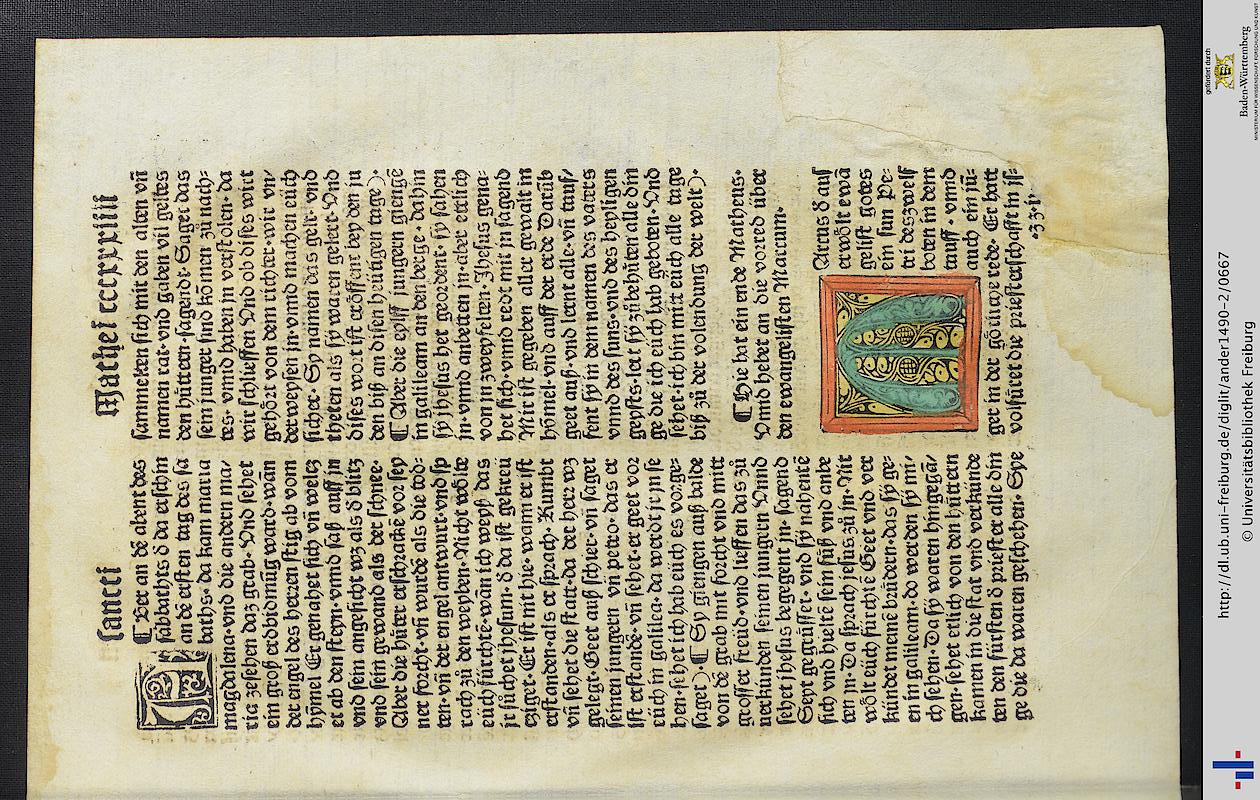 Sancti
Mathei ccccxxiiii
ABer an dē abent des
sabbaths ð da erschin
an dē ersten tag des sa
baths· da kam maria
magdalena·vnd die andern ma⸗
ria zesehen daz grab·Vnd sehet
ein groß erdbidmūg ward·wān
der engel des herren stig ab vom
hymel Er genahet sich vñ weltz
et ab den steyn·vnnd saß auff jm
vnd sein angesicht wz als ð blitz
vnd sein gewand als der schnee·
Aber die hüter erschrackē vor sey
ner forcht·vñ wurdē als die tod⸗
ten·vñ der engel antwurt·vnd sp
rach zů den weyben·Nicht wölt
eüch fürchtē·wān ich weyß das
jr sůchet jhesum·ð da ist gekreü
tziget·Er ist nit hie·wann er ist
erstanden·als er sprach·Kummbt
vñ sehet die statt·da der herr wz
gelegt·Geet auß schier·vñ saget
seinen jungern vñ petro·das er
ist erstandē·vñ sehet·er geet vor
eüch in galilea·da werdēt jr jn se
hen·sehet ich hab eüch es vorge⸗
saget) ¶ Sy giengen auß balde
von dē grab mit forcht vnd mitt
grosser freüd·vnd lieffen das zů
verkünden seinen jungern Vnnd
sehet jhesus begegent jn· sagend
Seyt gegrüsset·vnd sy nahentē
sich vnd hieltē sein füß vnd anbe
ten jn·Da sprach jesus zů jn·Nit
wölt eüch fürchtē Geet vnd ver
kündet meinē brüdern·das sy ge⸗
en in galileam·do werden sy mi⸗
ch sehen·Da sy waren hingegā⸗
gen·sehet etlich von den hütern
kamen in die stat vnd verkünde
ten den fürsten ð priester alle din
ge die da waren geschehen·Sye
sammelten sich mit den alten vñ
namen rat·vnd gaben vil geltes
den hütern·sagend·Saget das
sein junger sind kōmen zů nach⸗
tes·vnnd haben jn verstolen·da
wir schlieffen Vnd ob dises wirt
gehört von dem richter·wir vn⸗
derweysen in vnnd machen eüch
sicher·Sy namen das gelt·vnd
theten als sy waren gelert·Vnd
dises wort ist eröffent bey den ju
den biß an disen heütigen tage)·
¶ Aber die eylff jungern giengē
in galileam an den berge·dahin
sy jhesus het geordent·sy sahen
jn·vnnd anbetten jn·aber etlich
von in zweyfelten·Jhesus gena⸗
het sich·vnnd redt mit jn sagend
Mir ist gegeben aller gewalt in
hymel·vnd auff der erde Darūb
geet auß·vnd lernt alle·vñ tauf⸗
fent sy in dem namen des vaters
vnnd des suns·vnd des heyligen
geysts·leret sy zůbehüten alle din
ge die ich eüch hab geboten·Vnd
sehet·ich bin mitt eüch alle tage
biß zů der volendung der welt)·
¶ Hie hat ein ende Matheus·
Vnnd hebet an die vorred über
den ewangelisten Marcum·
MArcus ð auß
erwölt ewā
gelist gottes
ein sun Pe⸗
tri des zwelf
boten in dem
tauff·vnnd
auch ein jů⸗
ger in der götlichē rede· Er hatt
volfüret die priesterschafft in js⸗
gefördert durch
Baden-Württemberg
MINISTERIUM FÜR WISSENSCHAFT, FORSCHUNG UND KUNST
http://dl.ub.uni-freiburg.de/diglit/ander1490-2/0667
© Universitätsbibliothek Freiburg